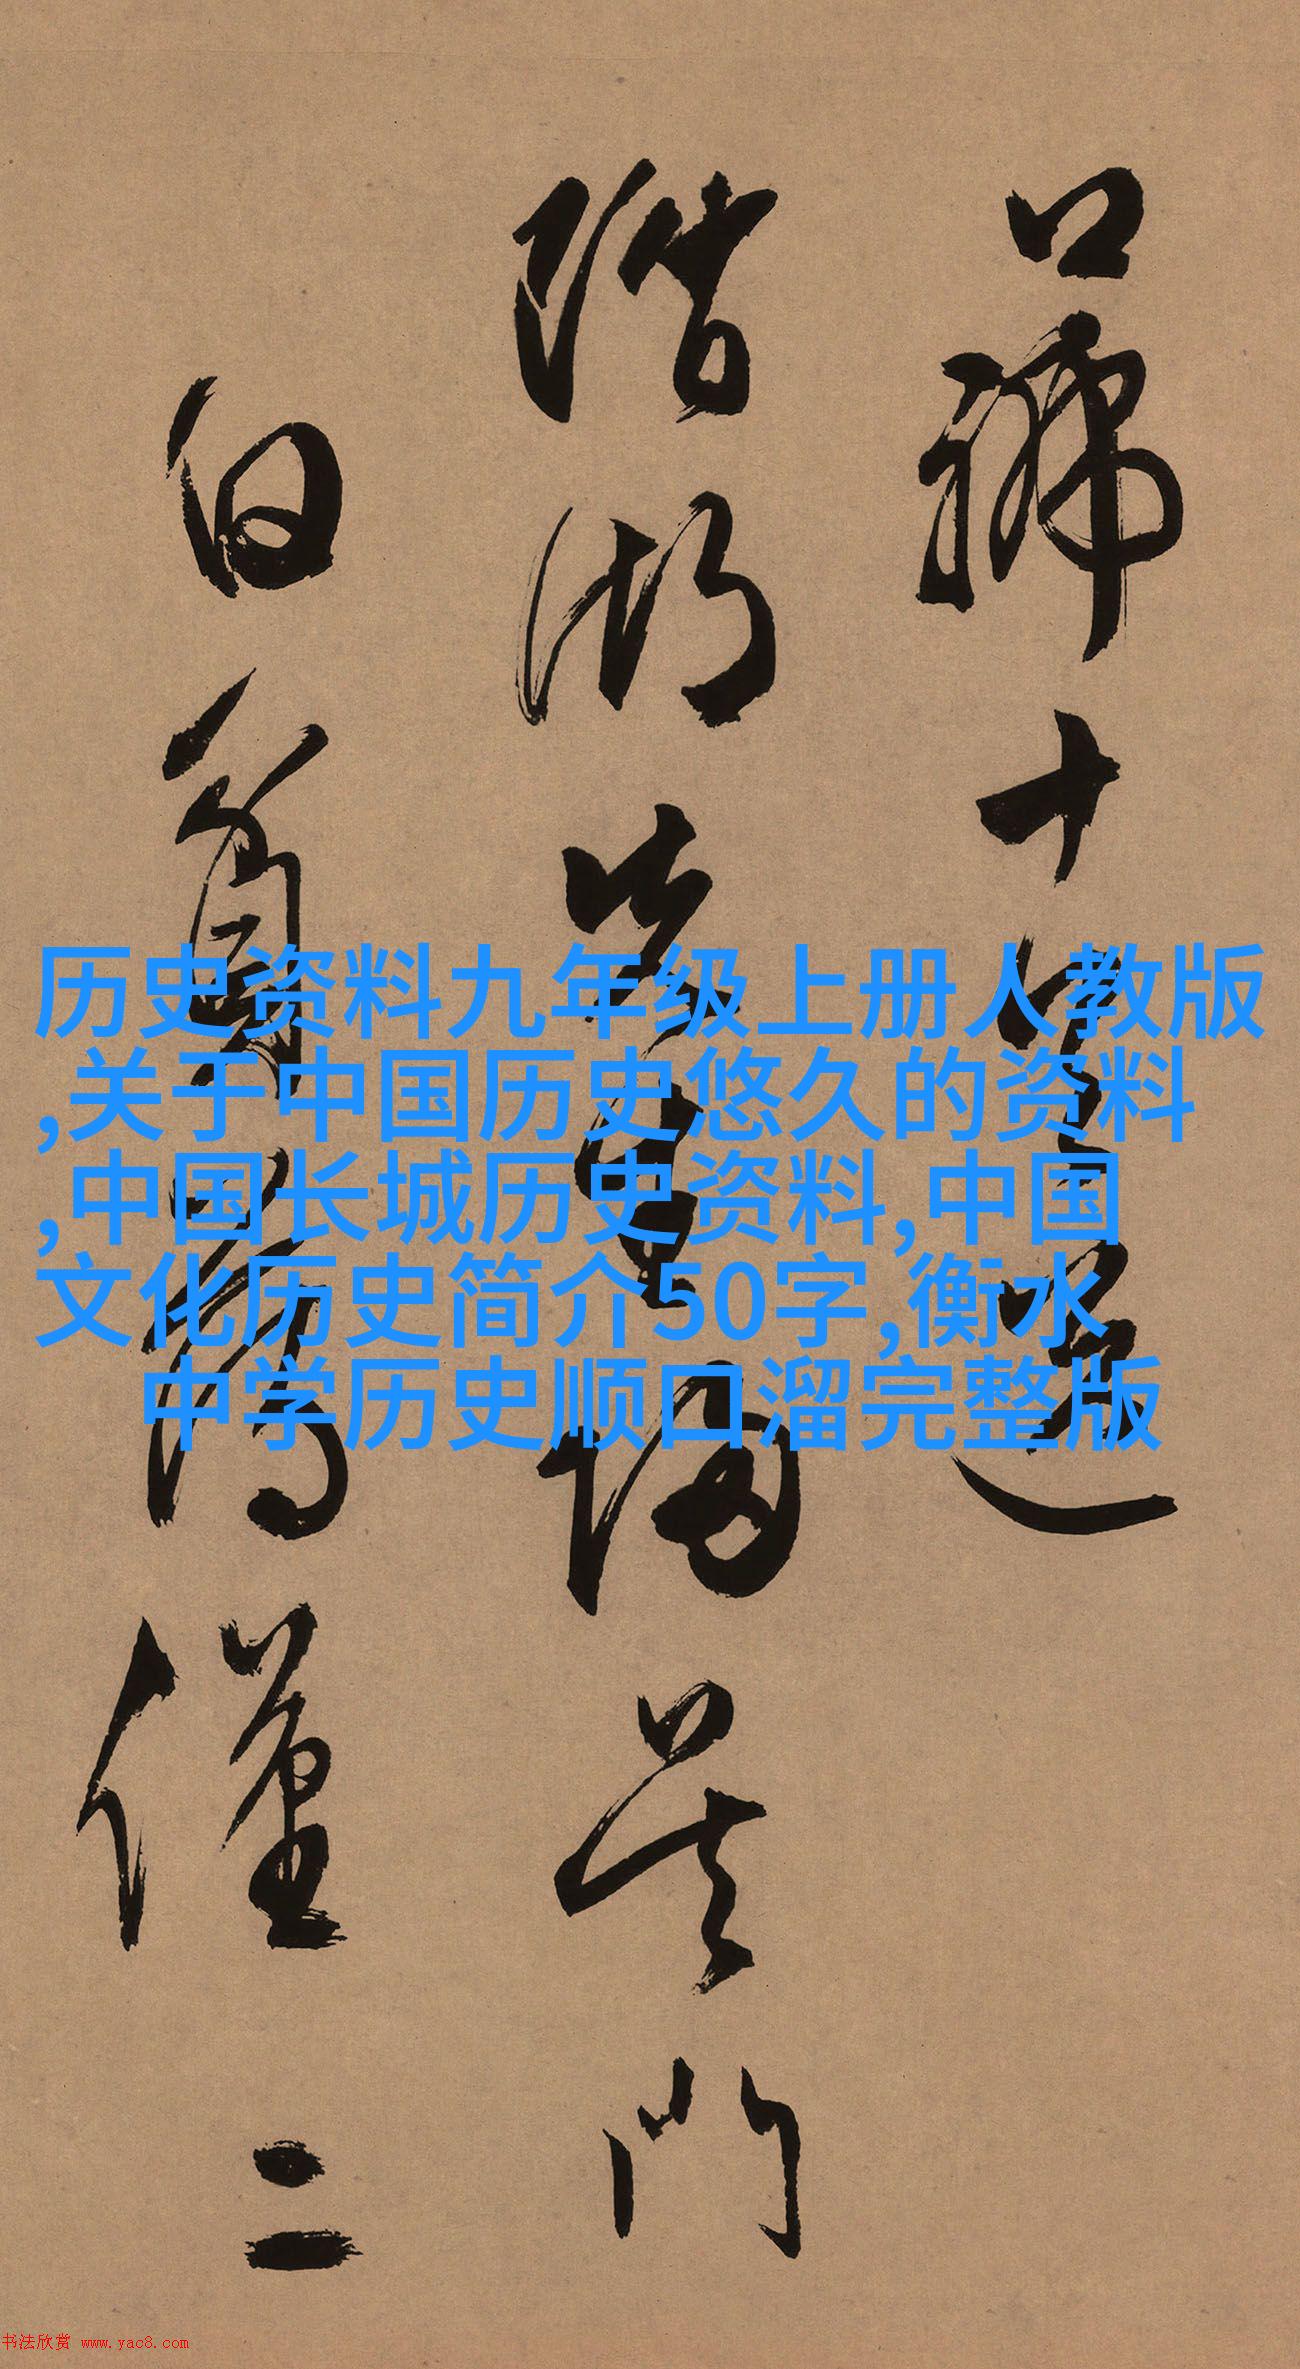 口號十
湖先生歸吳門
僅二
历史资料九年级上册人教版
,关于中国历史悠久的资料
,中国长城历史资料,中国
文化历史简介50字,衡水
中学历史顺口溜完整版
书法欣赏 www.yac8.com